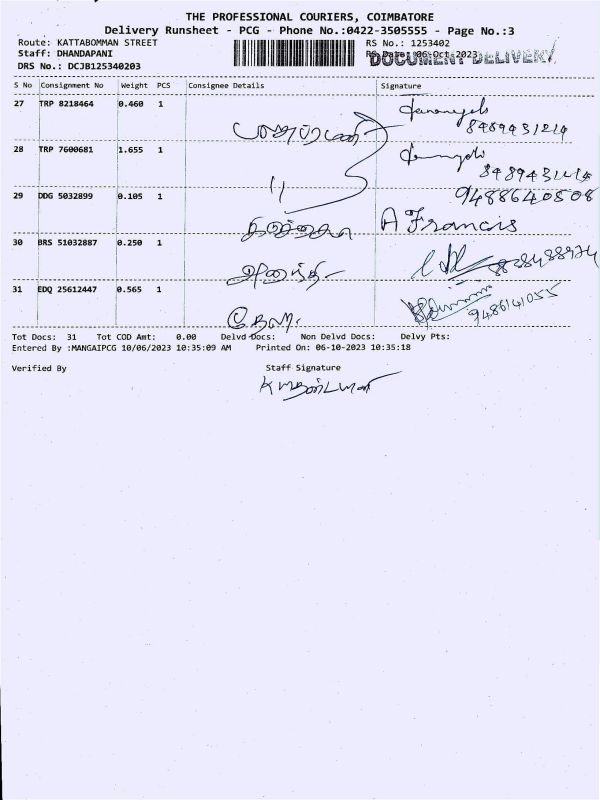 THE PROFESSIONAL COURIERS, COIMBATORE
Delivery Runsheet - PCG - Phone No.:0422-3505555 - Page No.:3
Route: KATTABOMMAN STREET
Staff: DHANDAPANI
DRS No.: DCJB125340203
RS No.: 1253402
RS Date: 06-Oct-2023
DOCUMENT DELIVERY
S No Consignment No Weight PCS Consignee Details Signature
27 TRP 8218464 0.460 1
8489431214
28 TRP 7600681 1.655 1
8489431214
29 DDG 5032899 0.105 1
9488640508
A Francis
30 BRS 51032887 0.250 1
31 EDQ 25612447 0.565 1
9486141055
Tot Docs: 31 Tot COD Amt: 0.00 Delvd Docs: Non Delvd Docs: Delvy Pts:
Entered By :MANGAIPCG 10/06/2023 10:35:09 AM Printed On: 06-10-2023 10:35:18
Verified By Staff Signature